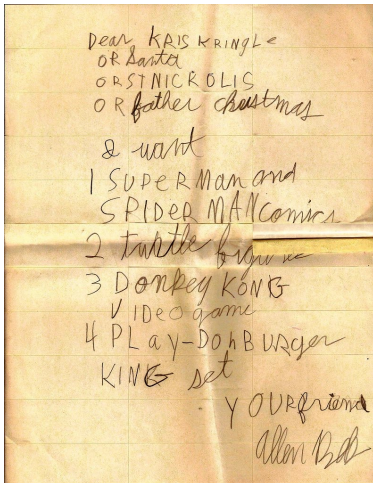 Dear KRIS KRINGLe
OR Santa
ORSTNICKOLIS
OR father christmas
I want
1 SUPERMan and
SPIDER MAN comics
2 turtle
3 Donkey KONG
VIDeogame
4 PLay-DOhBURger
KING set
YOUR friend
Allen